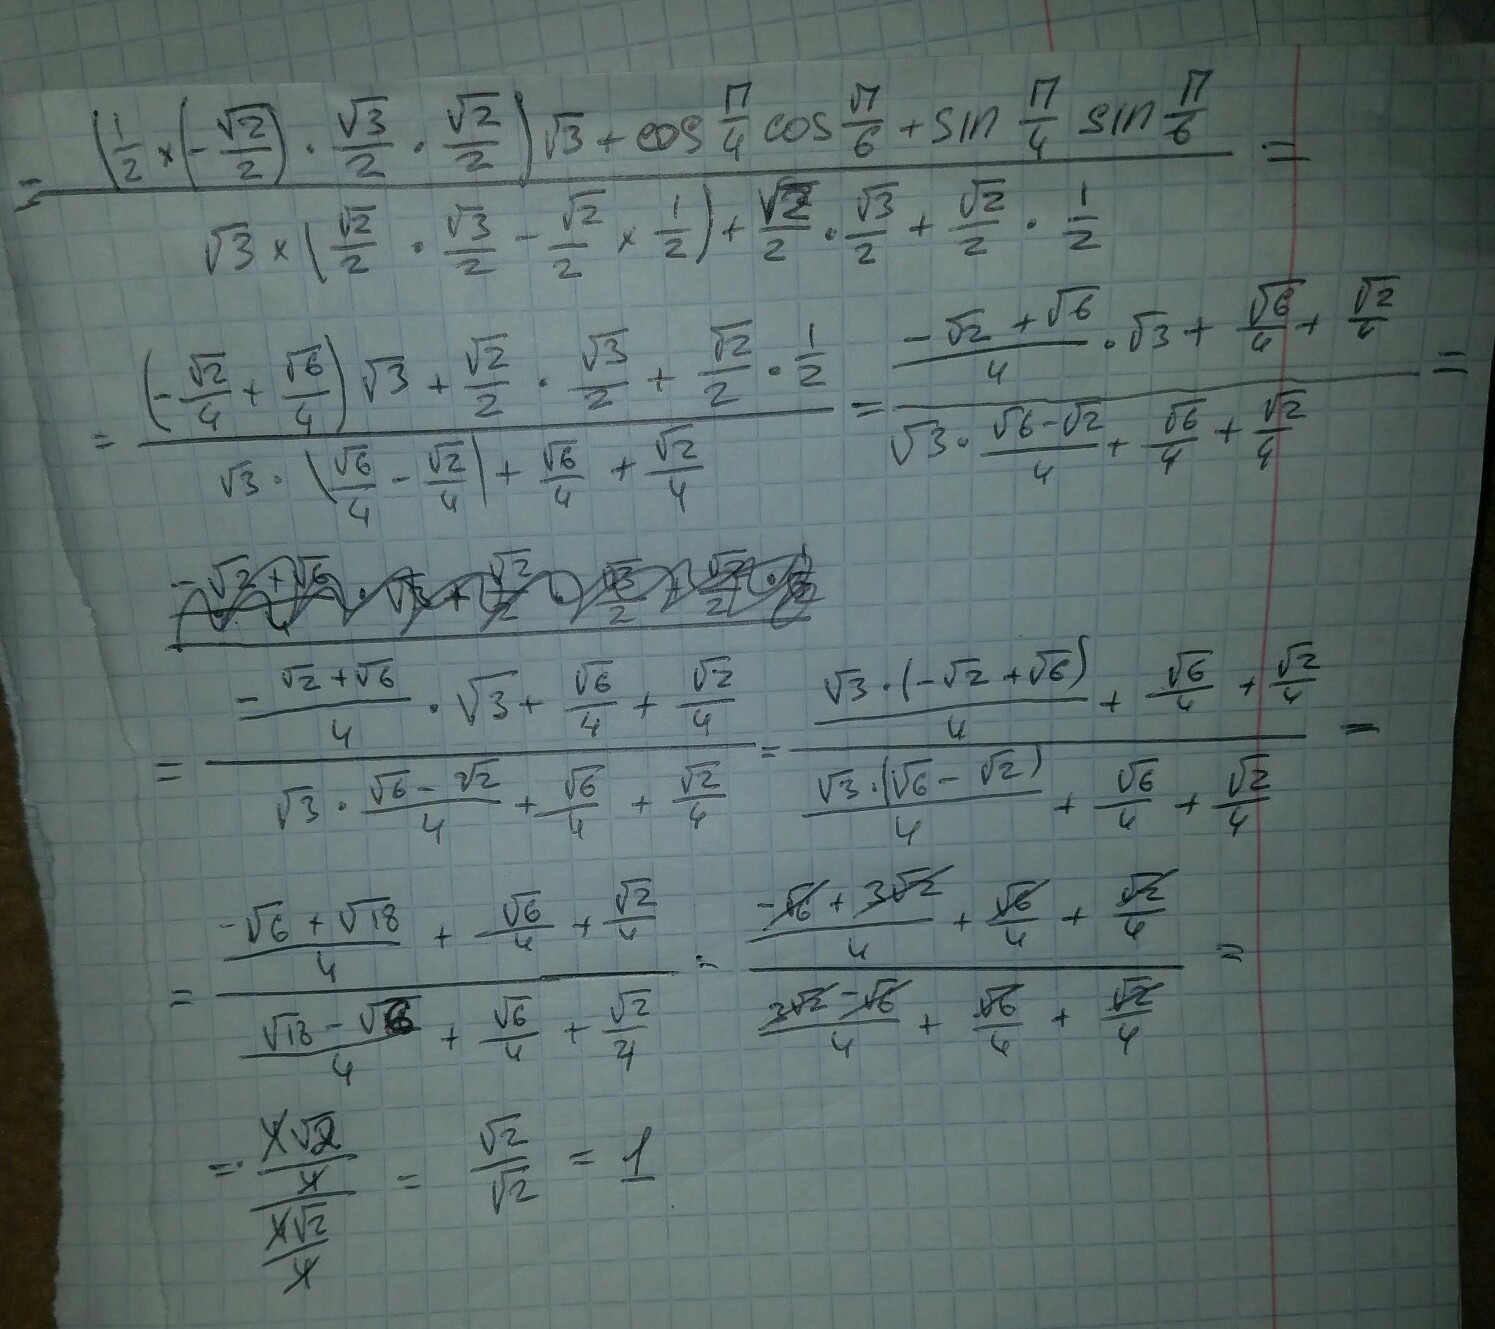 = ((1/2 × (-√2/2) · √3/2 · √2/2) √3 + cos П/4 cos П/6 + sin П/4 sin П/6) / (√3 × (√2/2 · √3/2 - √2/2 × 1/2) + √2/2 · √3/2 + √2/2 · 1/2) =
= ((-√2/4 + √6/4) √3 + √2/2 · √3/2 + √2/2 · 1/2) / (√3 · (√6/4 - √2/4) + √6/4 + √2/4) = ((-√2 + √6)/4 · √3 + √6/4 + √2/4) / (√3 · (√6 - √2)/4 + √6/4 + √2/4) =
= ((-√2 + √6)/4 · √3 + √6/4 + √2/4) / (√3 · (√6 - √2)/4 + √6/4 + √2/4) = (√3 · (-√2 + √6)/4 + √6/4 + √2/4) / (√3 · (√6 - √2)/4 + √6/4 + √2/4) =
= ((-√6 + √18)/4 + √6/4 + √2/4) / ((√18 - √6)/4 + √6/4 + √2/4) = ((-√6 + 3√2)/4 + √6/4 + √2/4) / ((3√2 - √6)/4 + √6/4 + √2/4) =
= (4√2/4) / (4√2/4) = √2/√2 = 1